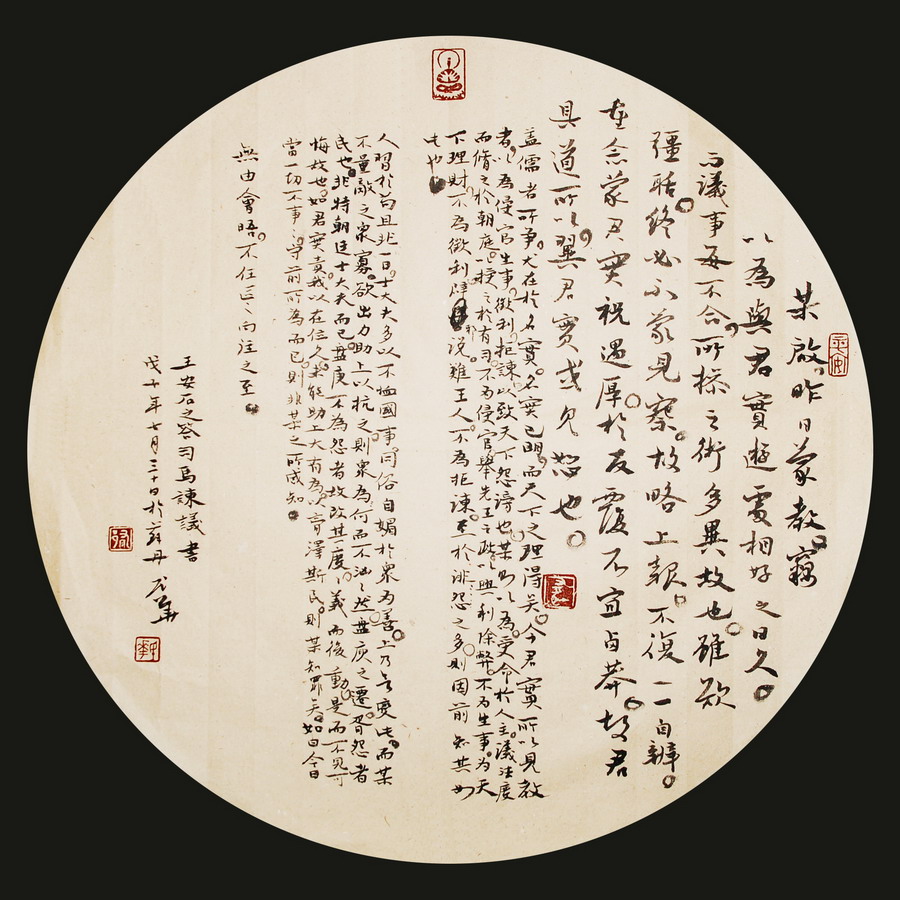 某啟。昨日蒙教。竊
以為與君實遊處相好之日久。
而議事每不合，所操之術多異故也。雖欲
彊聒。終必不蒙見察。故略上報。不復一一自辨。
重念蒙君實視遇厚。於反覆不宜鹵莽。故君
具道所以，冀君實或見恕也。
蓋儒者所爭。尤在於名實。名實已明，而天下之理得矣。今君實所以見教
者，以為侵官生事，徵利拒諫，以致天下怨謗也。某則以為受命於人主。議法度
而脩之於朝廷。以授之於有司。不為侵官。舉先王之政。以興利除弊。不為生事。為天
下理財。不為徵利。辟說。難壬人。不為拒諫。至於誹怨之多。則固前知其如
此也。
人習於苟且非一日。士大夫多以不恤國事。同俗自媚於眾為善。上乃欲變此。而某
不量敵之眾寡。欲出力助上以抗之。則眾為何而不洶洶然。盤庚之遷。胥怨者
民也。非特朝廷士大夫而已。盤庚不為怨者故改其度。度義而後動。是而不見可
悔故也。如君實責我以在位久。未能助上大有為。以膏澤斯民。則某知罪矣。如曰今日
當一切不事事。守前所為而已。則非某之所敢知。
無由會晤。不任區區向往之至
王安石之答司馬諫議書
戊子年七月三十日於